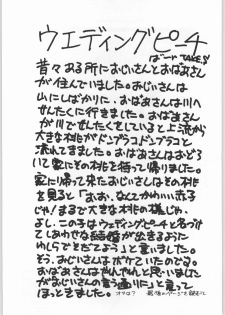 ウエディングピーチ
ばーど TAKE.S
昔々ある所におじいさんとおばあさん
が住んでいました。おじいさんは
山にしばかりに、おばあさんは川へ
せんたくに行きました。おばあさん
が川でせんたくをしていると上流から
大きな桃がドンブラコドンブラコと
流れてきました。おばあさんはおどろ
いて家にその桃を持って帰りました。
家に帰って来たおじいさんはその桃
を見ると「おお、なんてかわいい赤子
じゃ!まるで大きな桃の様じゃ、
よし、この子はウェディングピーチと名づけ
てしあわせな結婚が出来るように
わしらでそだてよう」と言いました。
そう、おじいさんはボケていたのである。
おばあさんはやれやれと思いました
がおじいさんの言う通りに」と言って
ほっときました。